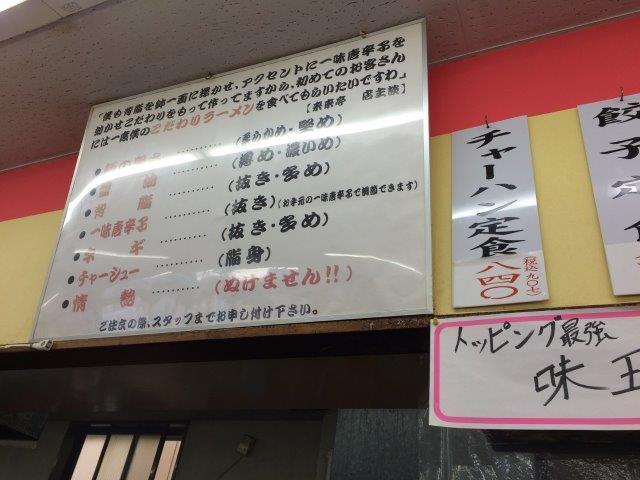 「僕も背脂を鉢一面に浮かせ、アクセントに一味唐辛子を
効かせこだわりをもって作ってますから、初めてのお客さん
には一度僕のこだわりラーメンを食べてもらいたいですわ」
【来来亭 店主談】
(柔らかめ・堅め)
●醤油………(薄め・濃いめ)
●背脂………(抜き・多め)
●一味唐辛子……(抜き)(お手元の一味唐辛子で調節できます)
●ネギ………(抜き・多め)
●チャーシュー………(脂身)
●情熱………(ぬけません!!)
ご注文の際、スタッフまでお申し付け下さい。
チャーハン定食
八四〇
税込九〇七
餃子定食
トッピング最強
味玉